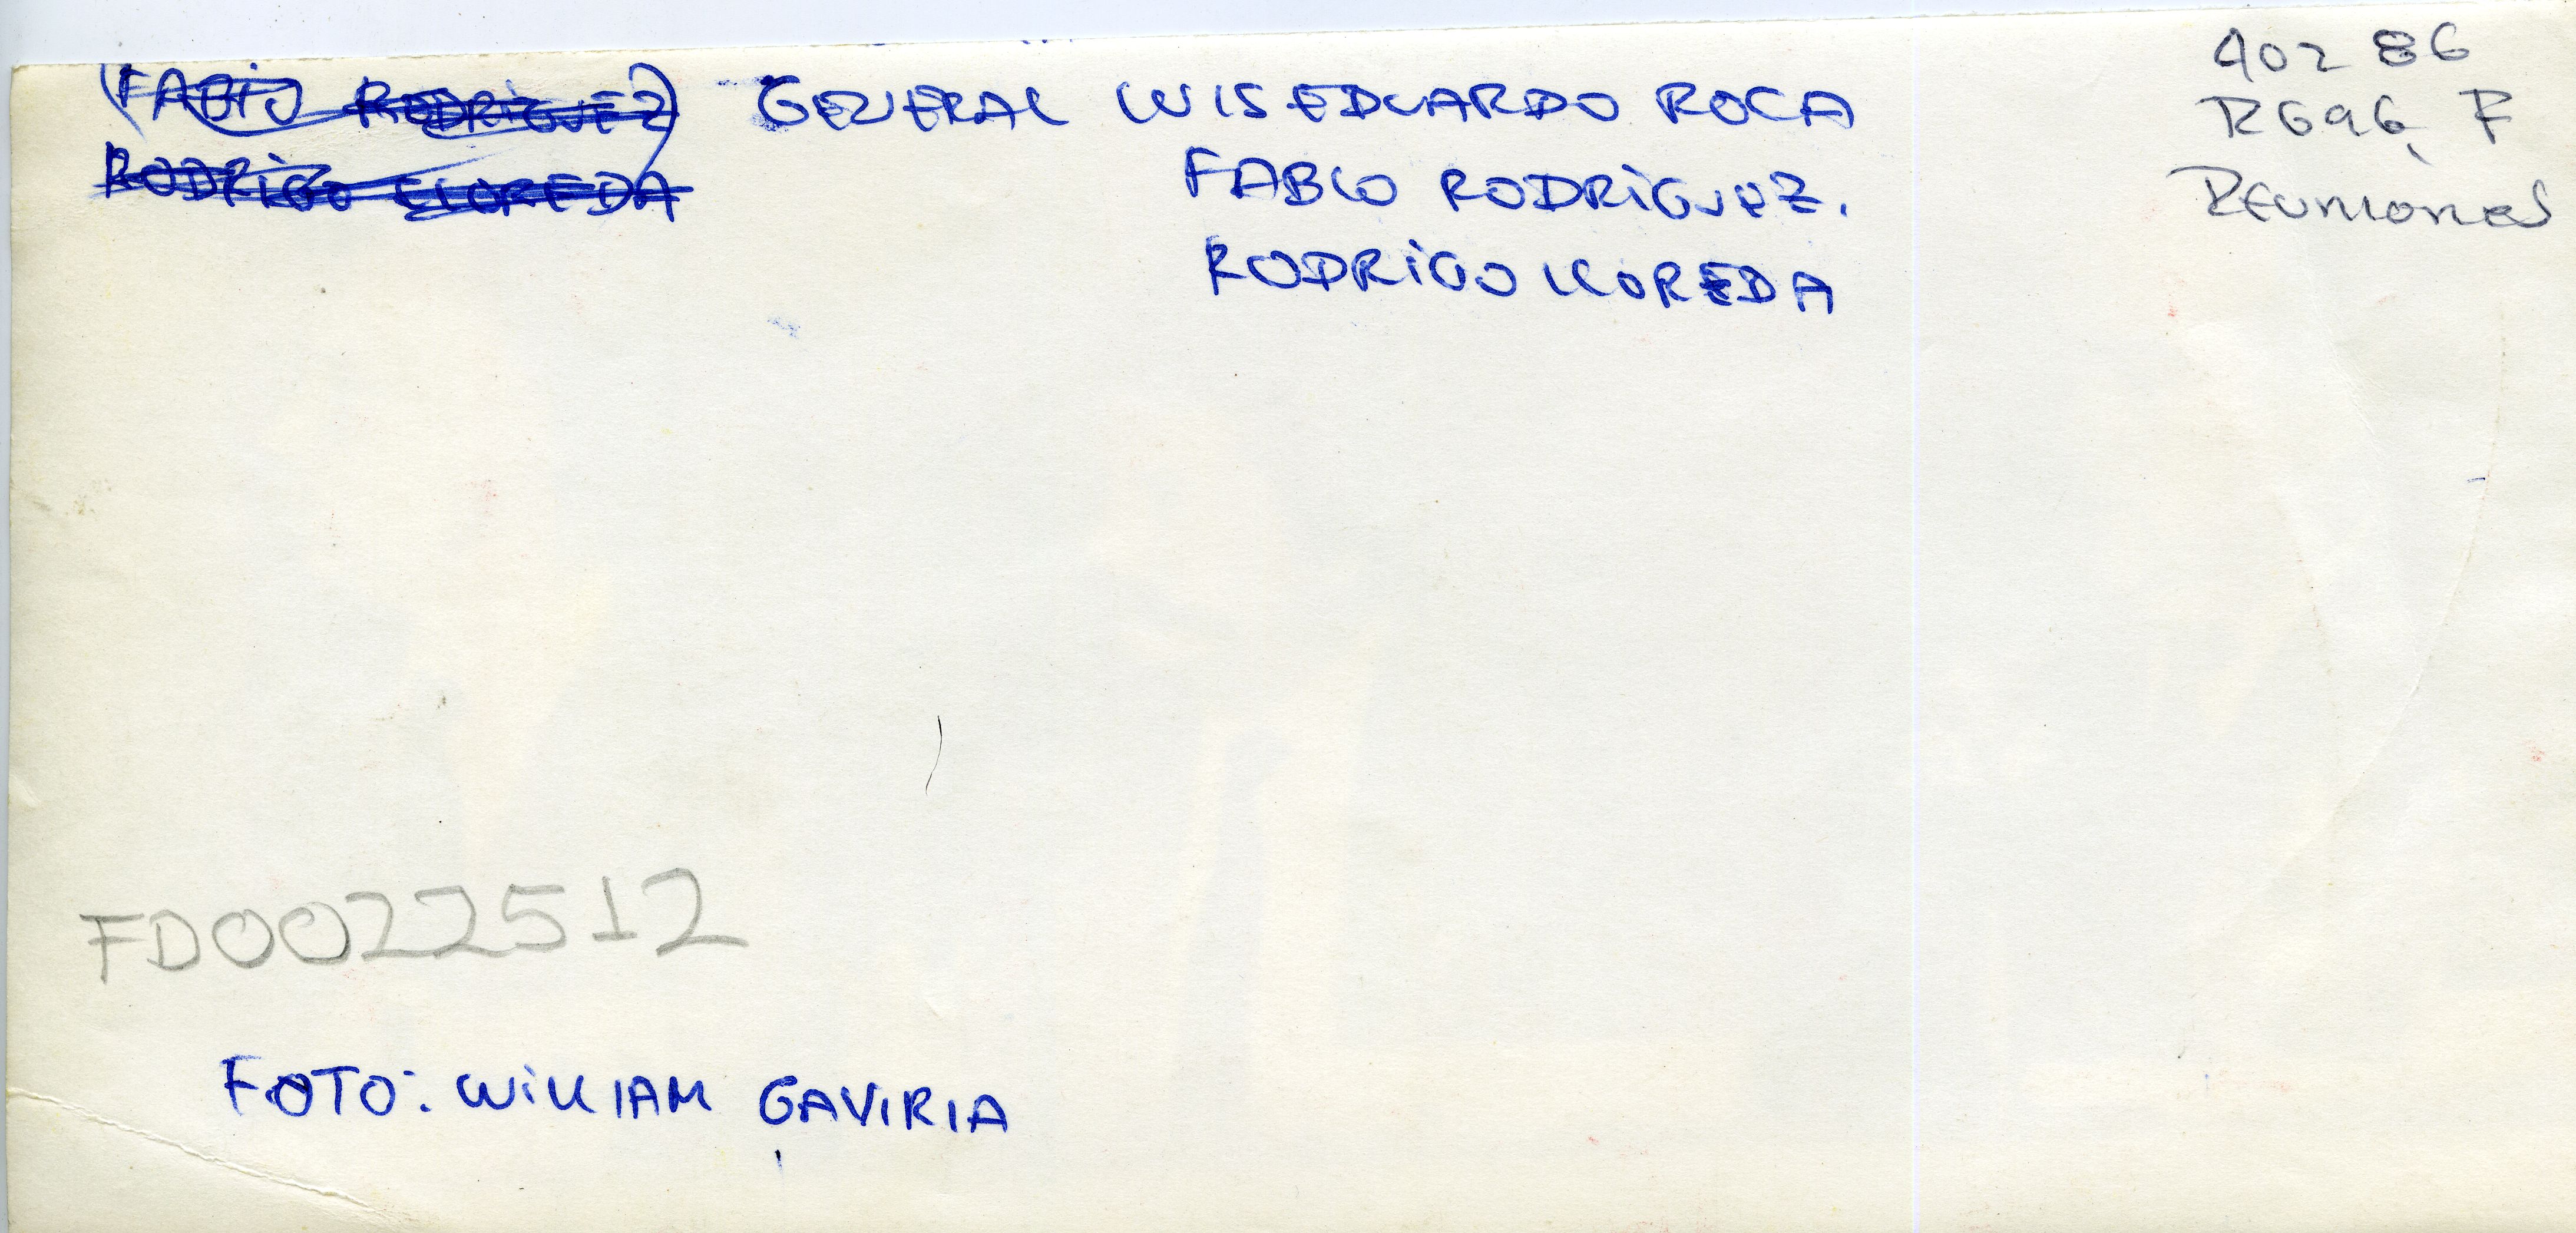 (FABIO RODRIGUEZ)
RODRIGO LLOREDA
GENERAL LUIS EDUARDO ROCA
FABIO RODRIGUEZ.
RODRIGO LLOREDA
40286
R696, F
REUNIONES
FD0022512
FOTO: WILLIAM GAVIRIA